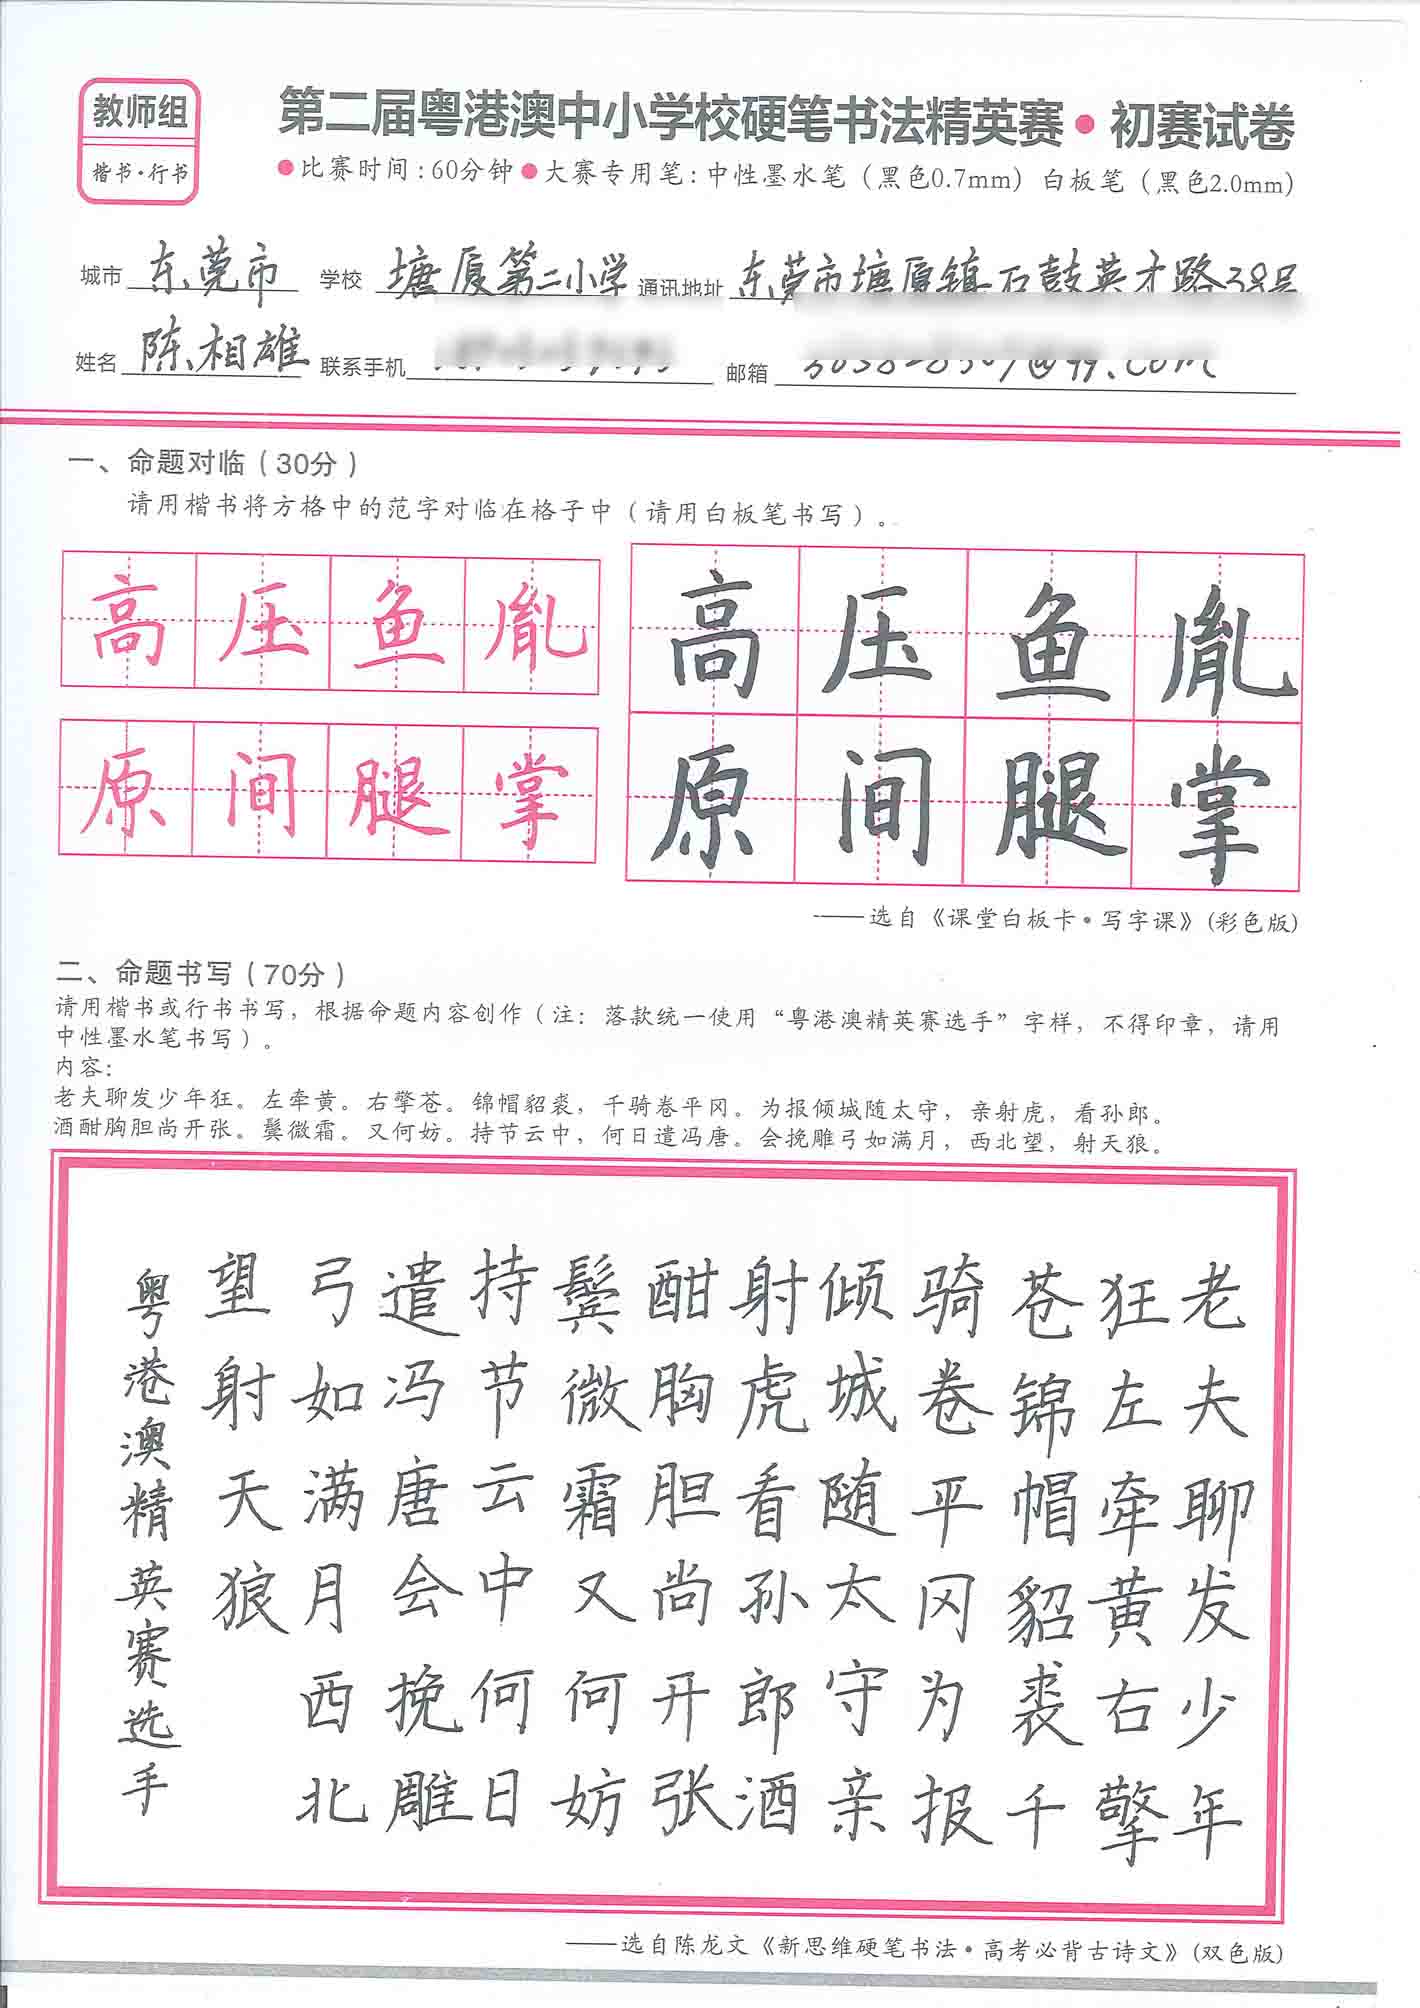 教师组
楷书·行书
第二届粤港澳中小学校硬笔书法精英赛·初赛试卷
●比赛时间:60分钟●大赛专用笔:中性墨水笔（黑色0.7mm）白板笔（黑色2.0mm）
城市 东莞市 学校 塘厦第二小学 通讯地址 东莞市塘厦镇石鼓英才路38号
姓名 陈相雄 联系手机 邮箱 @qq.com
一、命题对临（30分）
请用楷书将方格中的范字对临在格子中（请用白板笔书写）。
高压鱼胤
原间腿掌
高压鱼胤
原间腿掌
——选自《课堂白板卡·写字课》(彩色版)
二、命题书写（70分）
请用楷书或行书书写，根据命题内容创作（注：落款统一使用“粤港澳精英赛选手”字样，不得印章，请用
中性墨水笔书写）。
内容：
老夫聊发少年狂。左牵黄。右擎苍。锦帽貂裘，千骑卷平冈。为报倾城随太守，亲射虎，看孙郎。
酒酣胸胆尚开张。鬓微霜。又何妨。持节云中，何日遣冯唐。会挽雕弓如满月，西北望，射天狼。
老夫聊发少年
狂左牵黄右擎
苍锦帽貂裘千
骑卷平冈为报
倾城随太守亲
射虎看孙郎酒
酣胸胆尚开张
鬓微霜又何妨
持节云中何日
遣冯唐会挽雕
弓如满月西北
望射天狼
粤港澳精英赛选手
——选自陈龙文《新思维硬笔书法·高考必背古诗文》(双色版)